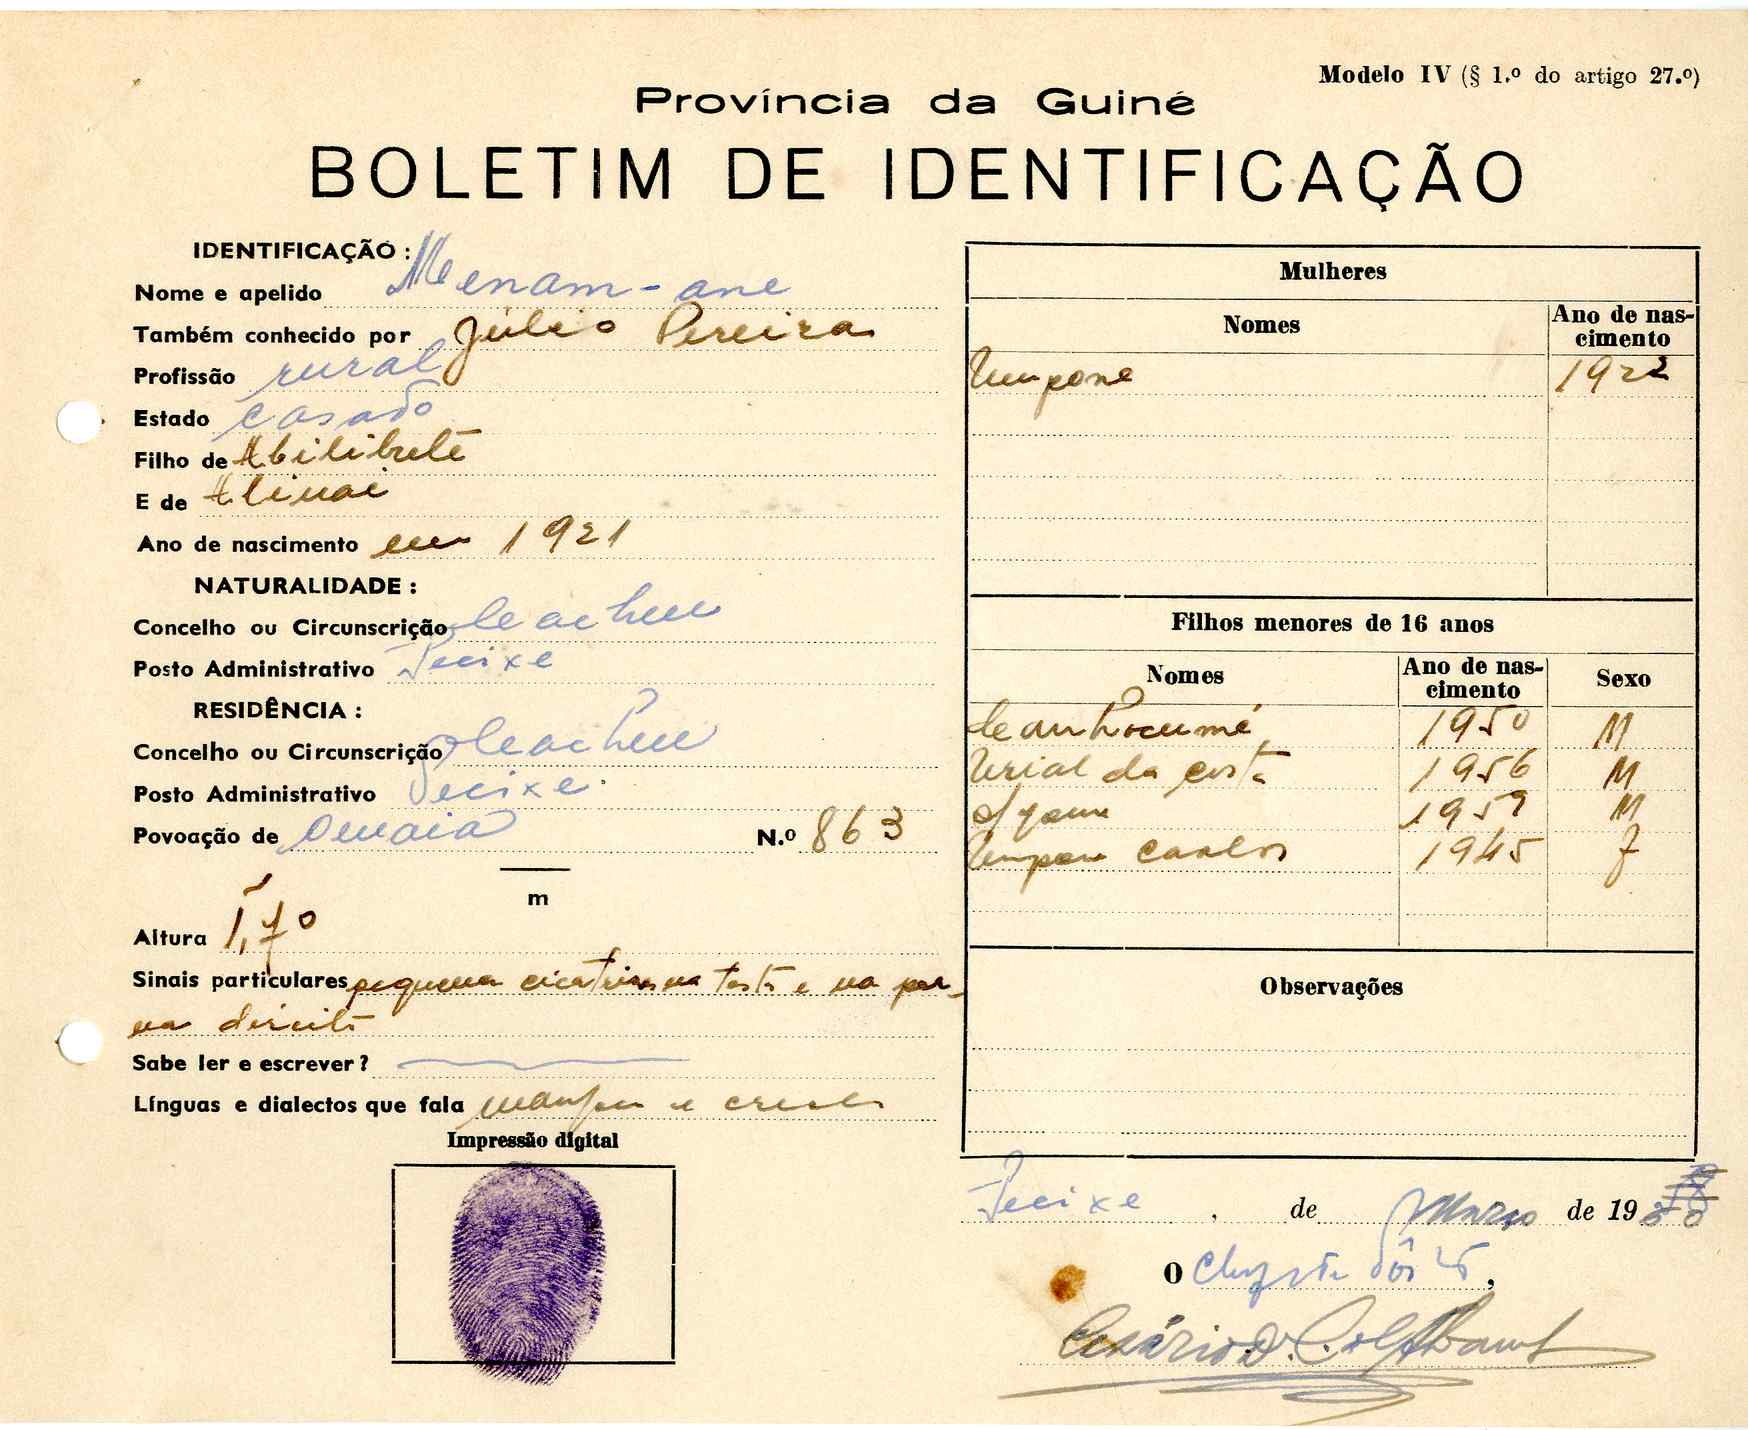 Modelo IV (§ 1.º do artigo 27.º)
Província da Guiné
BOLETIM DE IDENTIFICAÇÃO
IDENTIFICAÇÃO :
Nome e apelido Menam-ane
Também conhecido por Júlio Pereira
Profissão rural
Estado casado
Filho de Abilibuté
E de Alinai
Ano de nascimento em 1921
NATURALIDADE :
Concelho ou Circunscrição Cacheu
Posto Administrativo Pecixe
RESIDÊNCIA :
Concelho ou Circunscrição Cacheu
Posto Administrativo Pecixe
Povoação de N.º 863
m
Altura 1,70
Sinais particulares pequena cicatriz na testa e na per-
na direita
Sabe ler e escrever?
Línguas e dialectos que fala
Impressão digital
Mulheres
Nomes Ano de nas-
cimento
1922
Filhos menores de 16 anos
Nomes Ano de nas-
cimento Sexo
1950 M
da costa 1956 M
1959 M
Carlos 1945 F
Observações
Pecixe, de Março de 1960
O